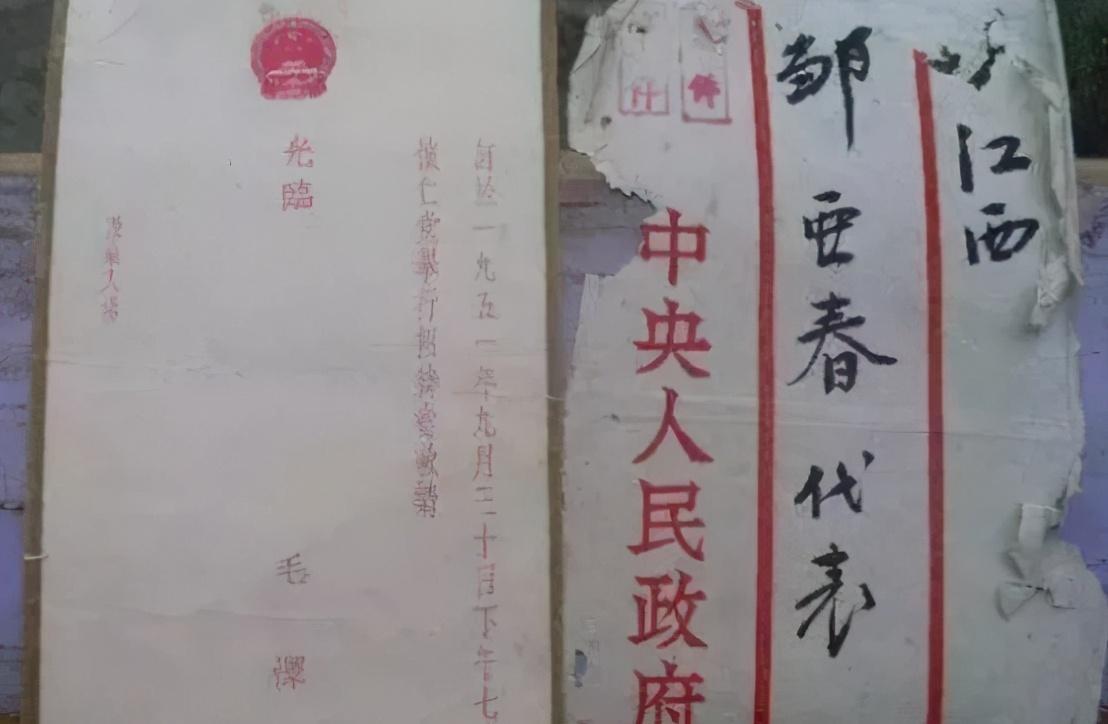 訂於一九五一年九月三十日下午七
懷仁堂舉行招待宴會敬請
光臨
毛澤
憑柬入場
江西
邹亜春代表
件
中央人民政府